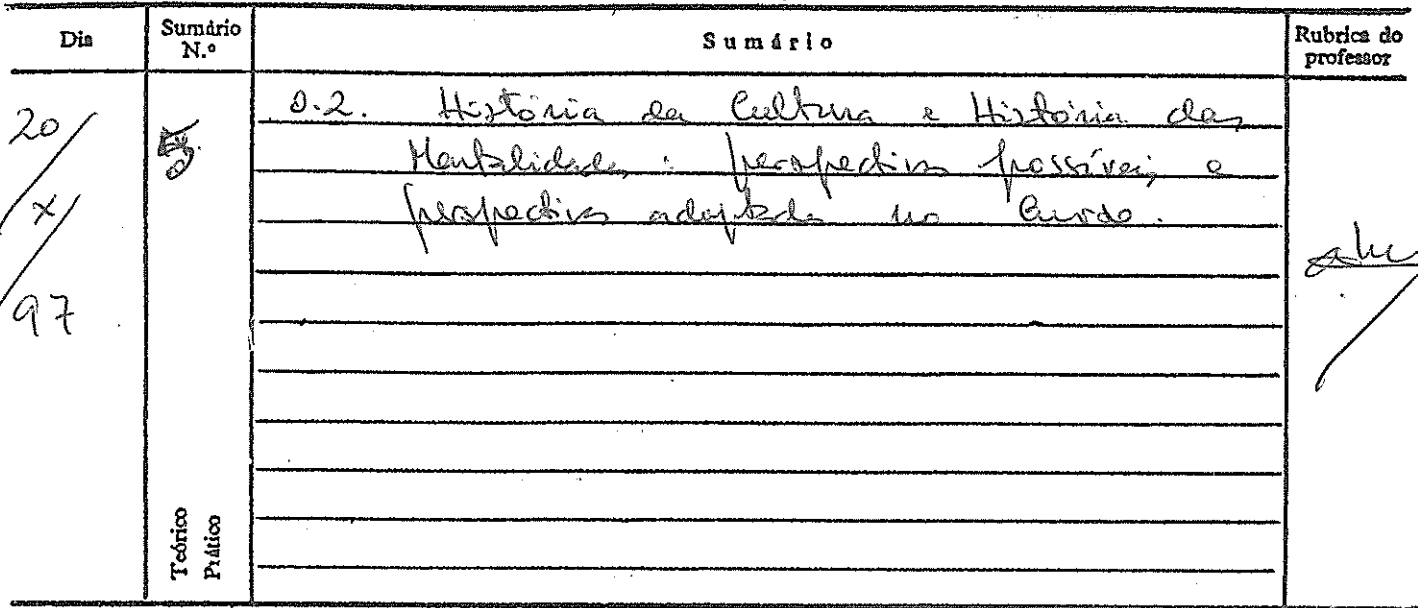 Dia
Sumário N.º
Sumário
Rubrica do professor
20/X/97
0.2. História da Cultura e História das
Mentalidades: perspectivas possíveis e
perspectiva adoptada no Curso.
Teórico
Prático